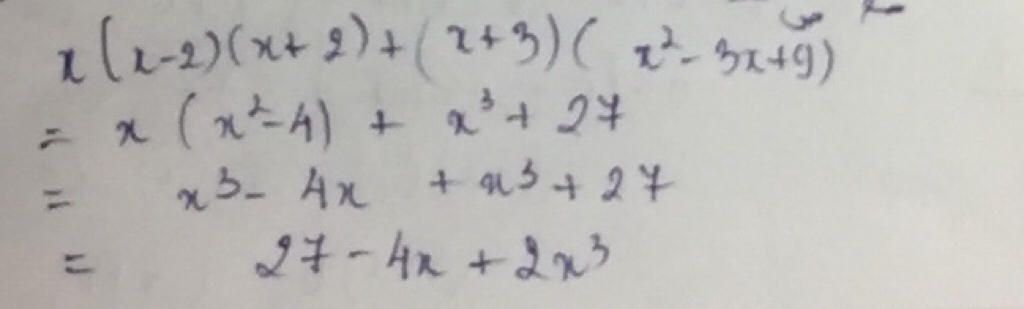 x(x-2)(x+2)+(x+3)(x²-3x+9)
= x(x²-4) + x³+27
= x³-4x +x³+27
= 27-4x+2x³